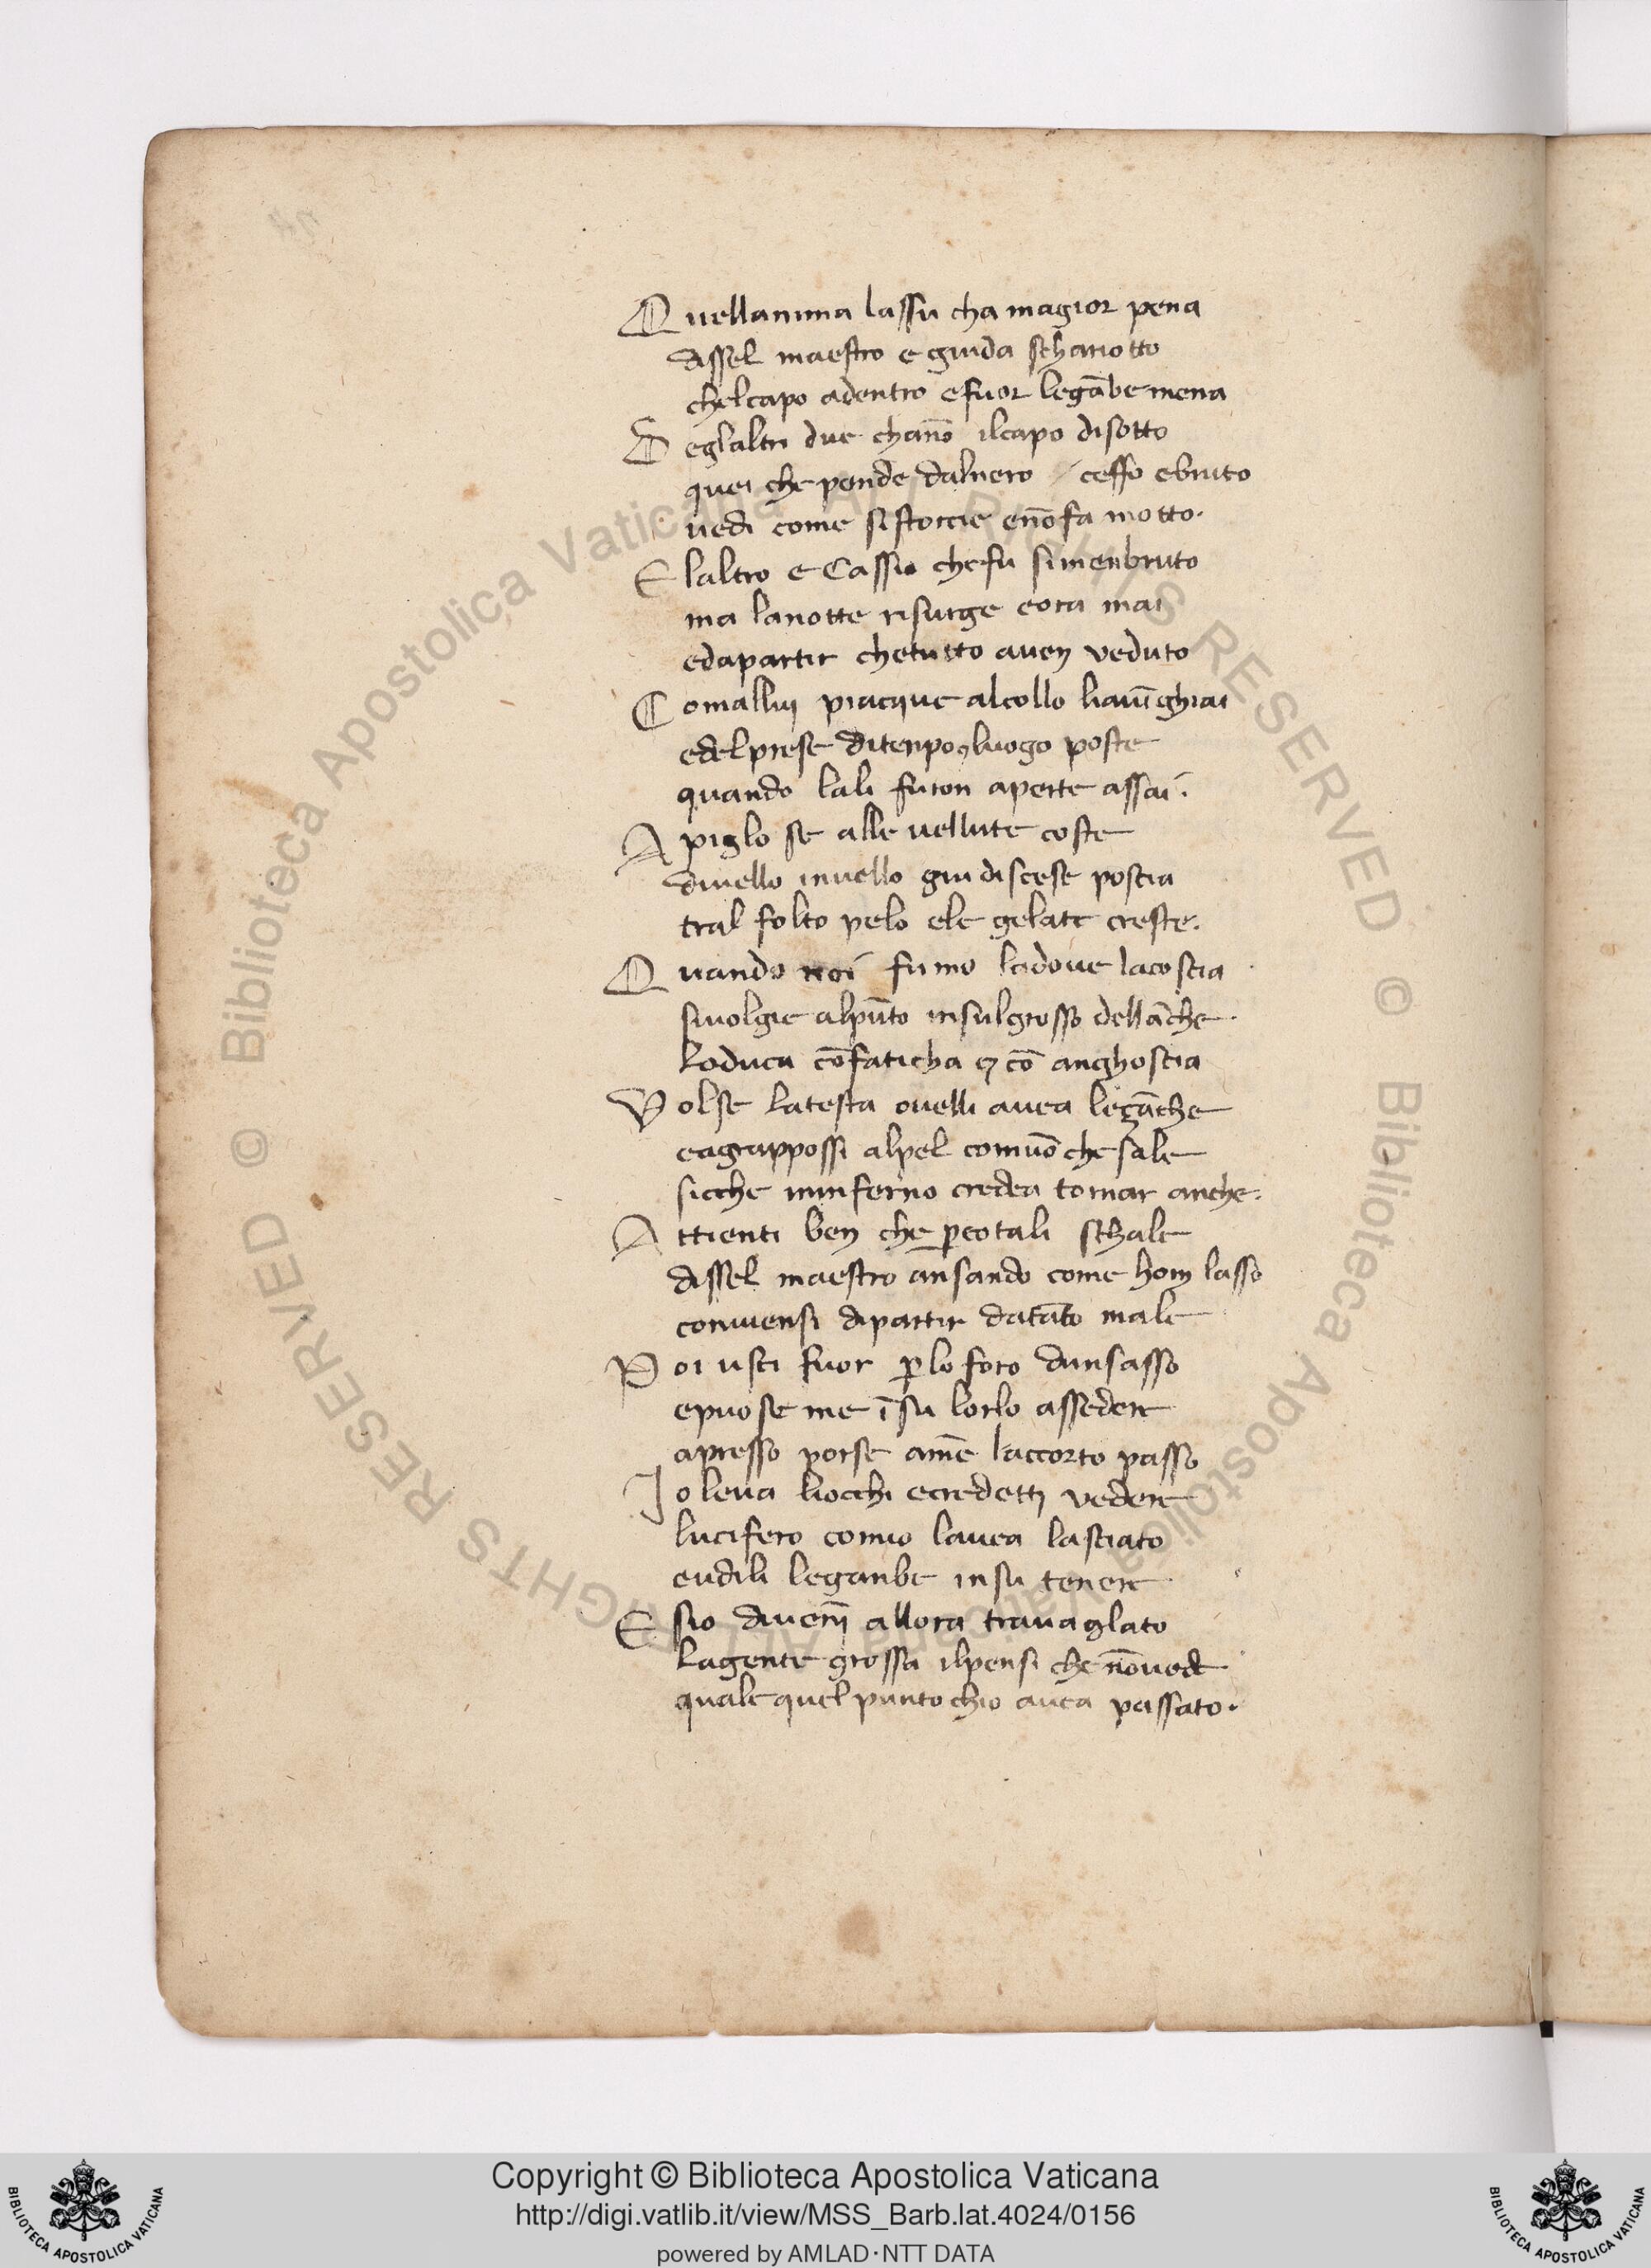 Quellanima lassu cha magior pena
dissel maestro e guida schariotto
chelcapo adentro efuor legābe mena
Deglaltri due channō ilcapo disotto
quei che pende dalnero ceffo ebruto
uedi come sistorcie enōfa motto.
Elaltro e Cassio chefu simenbruto
ma lanotte risurge eora mai
edapartir chetutto auen veduto
Comallui piacque alcollo liauīghiai
edelprese ditenpo et luogo poste
quando lali furon aperte assai.
Apiglo se alle uellute coste
diuello inuello giu discese poscia
tral folto pelo ele gelate creste.
Quando noi fumo ladoue lacoscia
siuolgie alpūto insulgrosso dellāche.
Loduca cōfaticha et cō anghoscia
Volse latesta ouelli auea legāche
eagrappossi alpel comuō che sale
sicche ininferno credea tornar anche.
Attienti ben che ꝑcotali schale
dissel maestro ansando come hom lasso
conuiensi dipartir datāto male
Poi usci fuor ꝑlo foro dunsasso
epuose me ī su lorlo assedere
apresso porse amē laccorto passo
Io leua liocchi ecredetti vedere
lucifero comio lauea lasciato
eudili leganbe insu tenere
Esio diuenī allora trauaglato
Lagente grossa ilpensi che nōuede
quale quel punto chio auea passato.
Copyright © Biblioteca Apostolica Vaticana
http://digi.vatlib.it/view/MSS_Barb.lat.4024/0156
powered by AMLAD·NTT DATA
BIBLIOTECA APOSTOLICA VATICANA
BIBLIOTECA APOSTOLICA VATICANA
© Biblioteca Apostolica Vaticana ALL RIGHTS RESERVED © Biblioteca Apostolica Vaticana ALL RIGHTS RESERVED